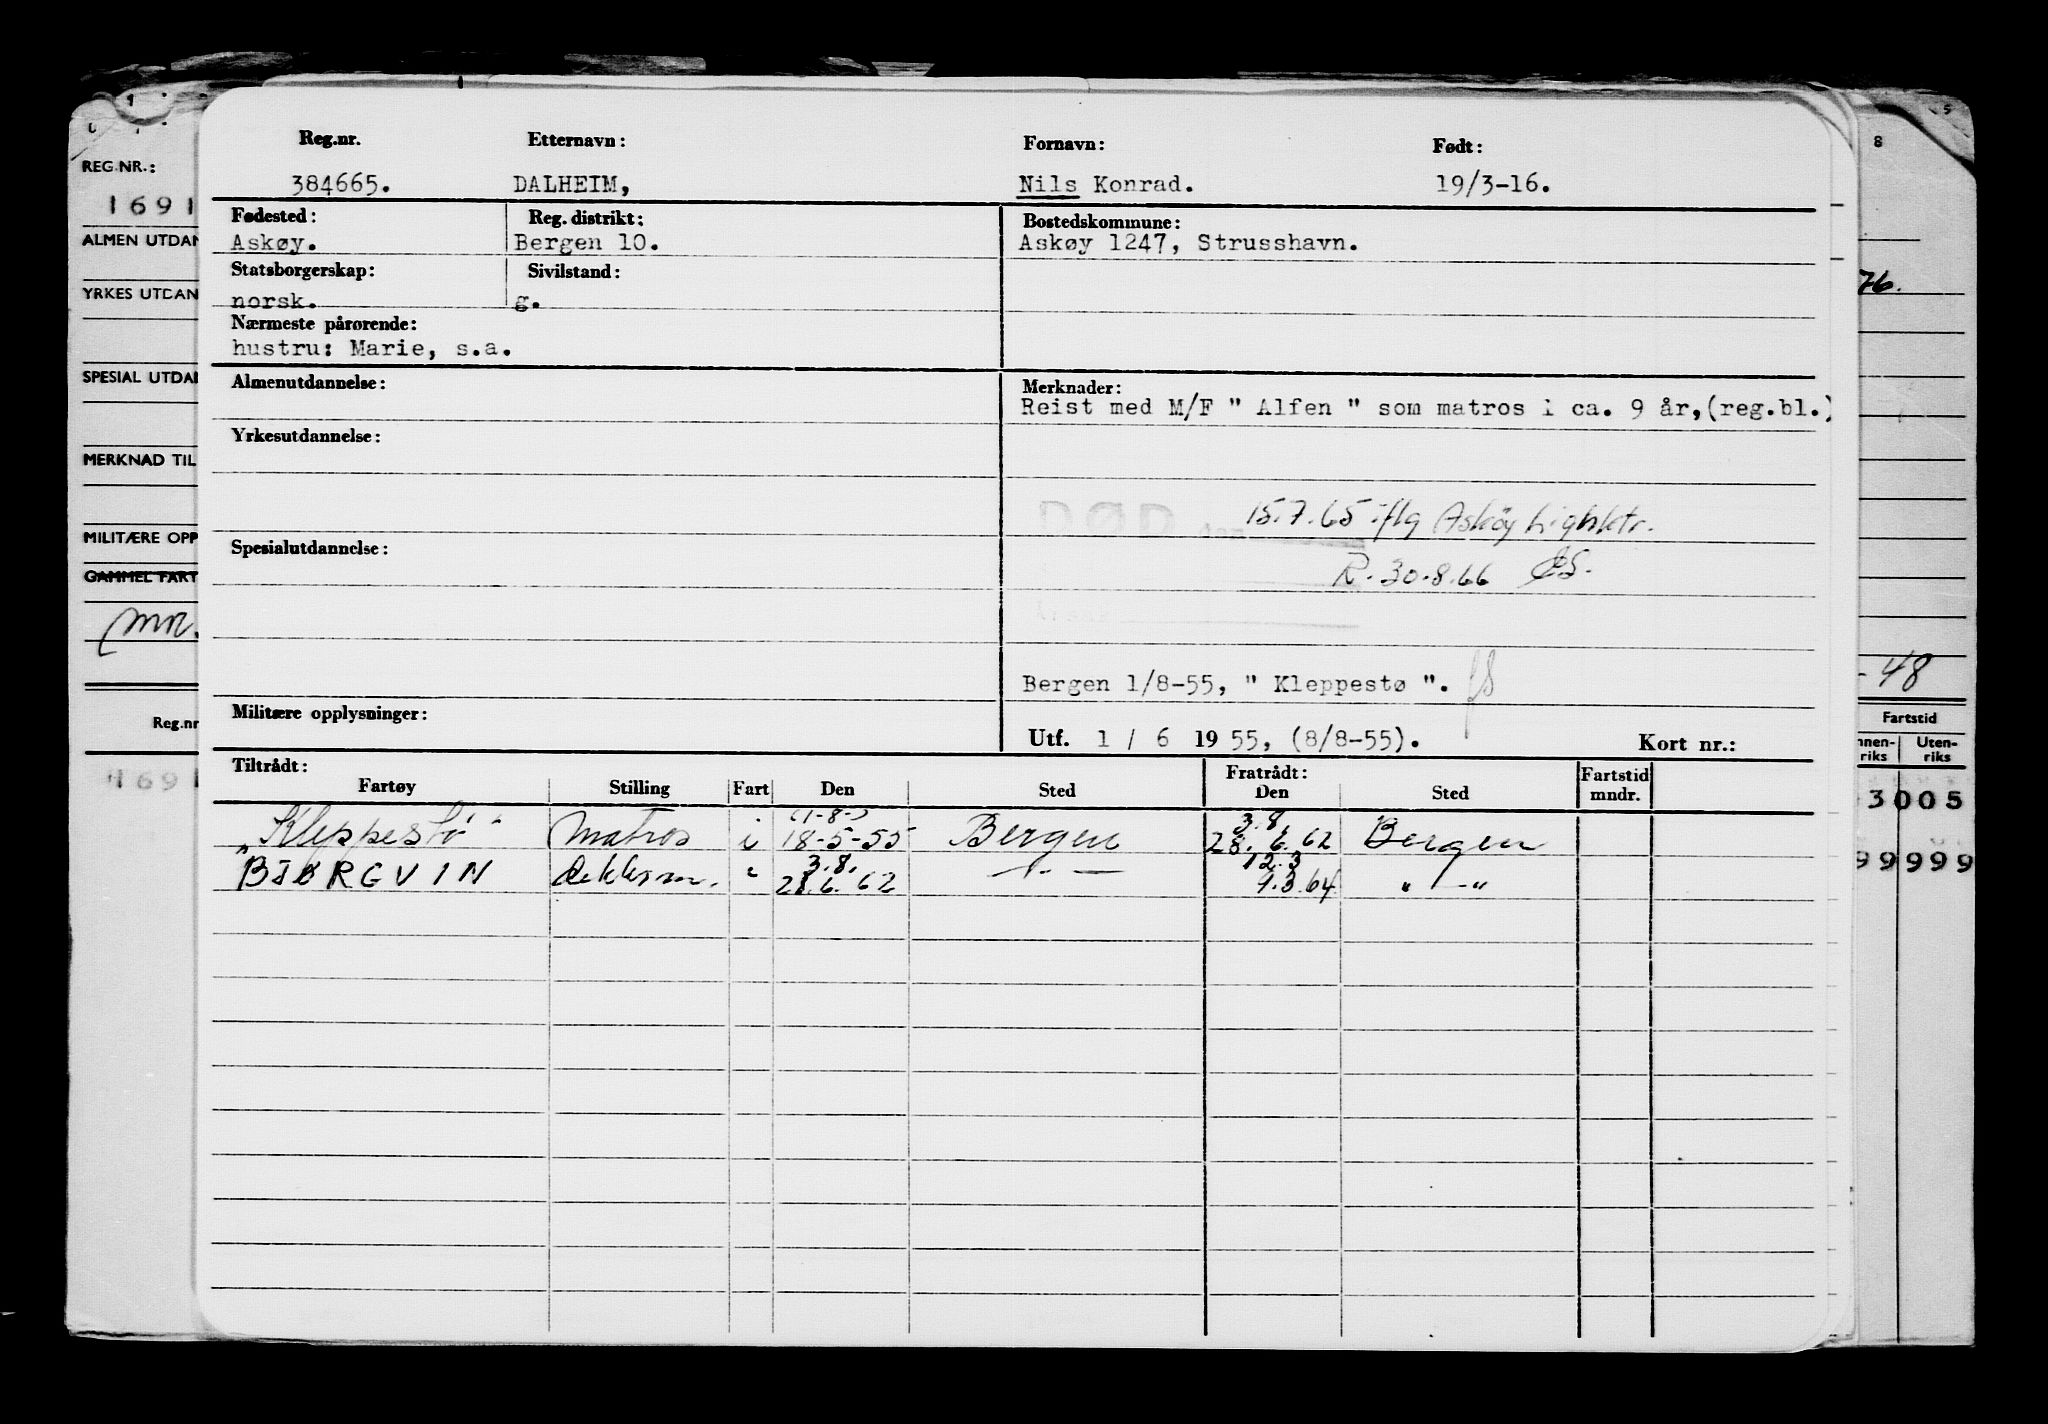 Reg.nr. Etternavn: Fornavn: Født:
384665. DALHEIM, Nils Konrad. 19/3-16.
Fødested: Reg. distrikt: Bostedskommune:
Askøy. Bergen 10. Askøy 1247, Strusshavn.
Statsborgerskap: Sivilstand:
norsk. g.
Nærmeste pårørende:
hustru: Marie, s.a.
Almenutdannelse: Merknader:
Reist med M/F " Alfen " som matros i ca. 9 år,(reg.bl.)
Yrkesutdannelse:
DØD 15.7.65 iflg Askøy
Spesialutdannelse:
R. 30.8.66
Årsak
Bergen 1/8-55, " Kleppestø ".
Militære opplysninger:
Utf. 1 / 6 1955, (8/8-55). Kort nr.:
Tiltrådt: Fratrådt: Fartstid
Fartøy Stilling Fart Den Sted Den Sted mndr.
(1-8-) 3.8.
"Kleppestø" Matros i 18-5-55 Bergen 28.6.62 Bergen
3.8. 12.3
BJØRGVIN dekksm. " 28.6.62 — " — 9.3.64 " — "
REG.NR.:
1691
ALMEN UTDAN
YRKES UTDAN
SPESIAL UTDAN
MERKNAD TIL
MILITÆRE OPP
GAMMEL FART
Reg.nr
1691
8
5
76.
- 48
Fartstid
nnen- Uten-
riks riks
3005
99999